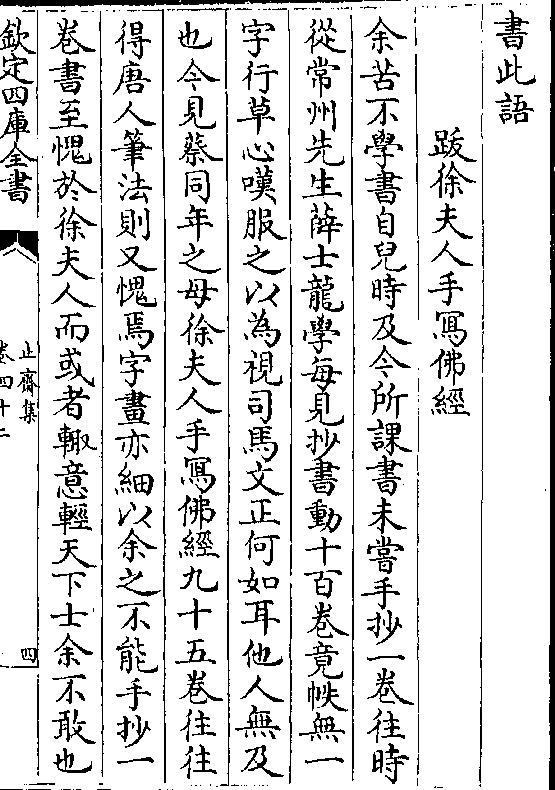 書此語
跋徐夫人手冩佛經
余苦不學書自兒時及今所課書未嘗手抄一卷往時
從常州先生薛士龍學每見抄書動十百卷竟帙無一
字行草心嘆服之以為視司馬文正何如耳他人無及
也今見蔡同年之母徐夫人手冩佛經九十五卷往往
得唐人筆法則又愧焉字畫亦細以余之不能手抄一
卷書至愧於徐夫人而或者輙意輕天下士余不敢也
欽定四庫全書
止齋集
卷四十二
四